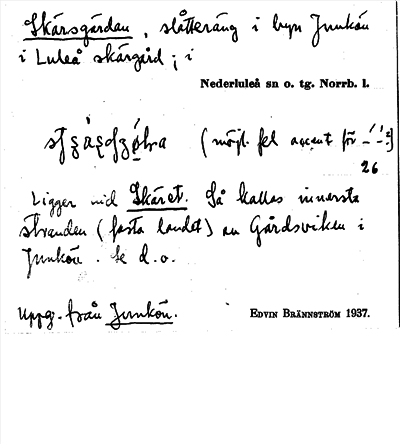 Skärsgårdan, slåtteräng i byn Junkön
i Luleå skärgård; i
Nederluleå sn o. tg. Norrb. l.
(möjl. fel accent för
26
Ligger vid Skäret. Så kallas innersta
stranden (fasta landet) av Gårdsviken i
Junkön. Se d.o.
Uppg. från Junkön.
EDVIN BRÄNNSTRÖM 1937.